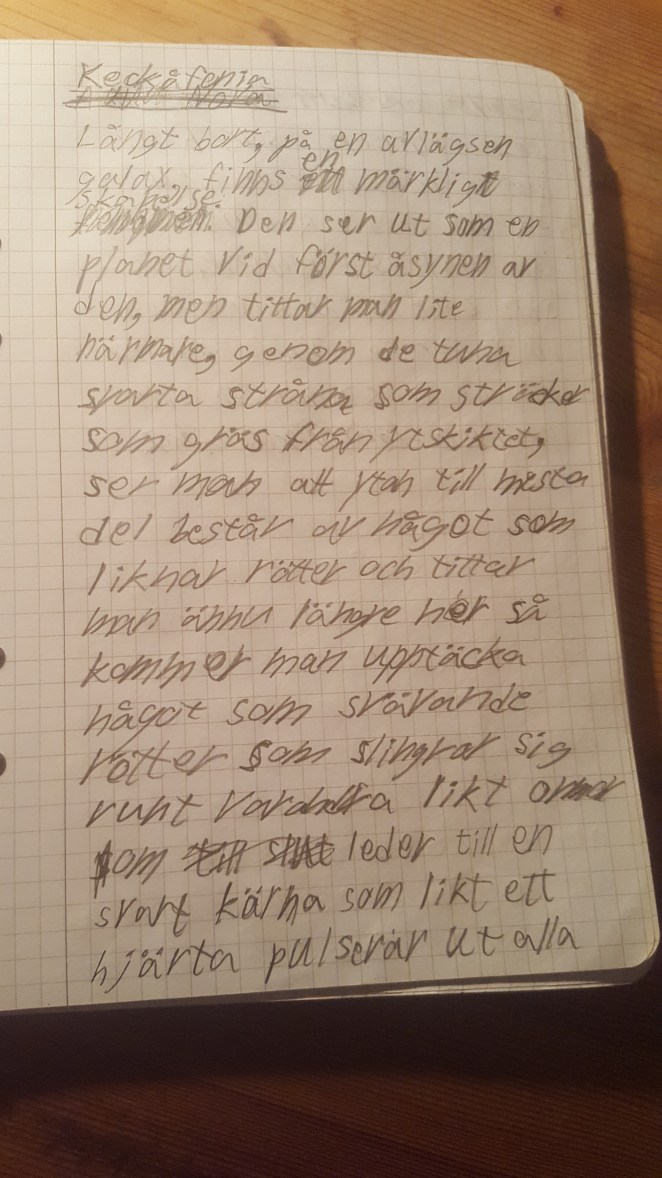 Keckåfenia
Långt bort, på en avlägsen
galax, finns en märklig
skapelse. Den ser ut som en
planet vid först åsynen av
den, men tittar man lite
närmare, genom de tuna
svarta stråna som sträcker
som gräs från ytskiktet,
ser man att ytan till mesta
del består av något som
liknar rötter och tittar
man ännu längre ner så
kommer man upptäcka
något som svävande
rötter som slingrar sig
runt varandra likt ormar
som leder till en
svart kärna som likt ett
hjärta pulserar ut alla